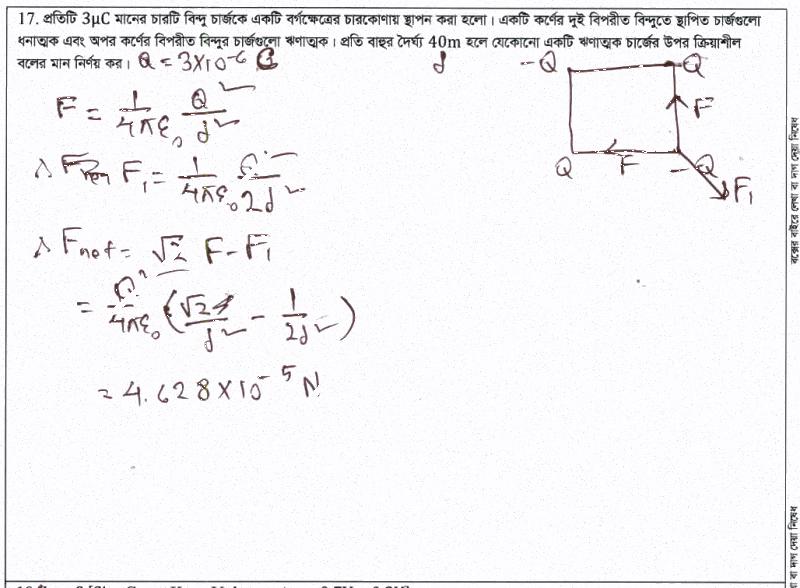 17. প্রতিটি 3μC মানের চারটি বিন্দু চার্জকে একটি বর্গক্ষেত্রের চারকোণায় স্থাপন করা হলো। একটি কর্ণের দুই বিপরীত বিন্দুতে স্থাপিত চার্জগুলো
ধনাত্মক এবং অপর কর্ণের বিপরীত বিন্দুর চার্জগুলো ঋণাত্মক। প্রতি বাহুর দৈর্ঘ্য 40m হলে যেকোনো একটি ঋণাত্মক চার্জের উপর ক্রিয়াশীল
বলের মান নির্ণয় কর। Q = 3×10⁻⁶ C
d
-Q Q
F
Q F -Q
F₁
F = 1/4πε₀ Q²/d²
∴ F₁ = 1/4πε₀ Q²/2d²
∴ Fnet = √2 F - F₁
= Q²/4πε₀ (√2/d² - 1/2d²)
= 4.628×10⁻⁵ N
বক্সের বাইরে লেখা বা দাগ দেয়া নিষেধ
বা দাগ দেয়া নিষেধ